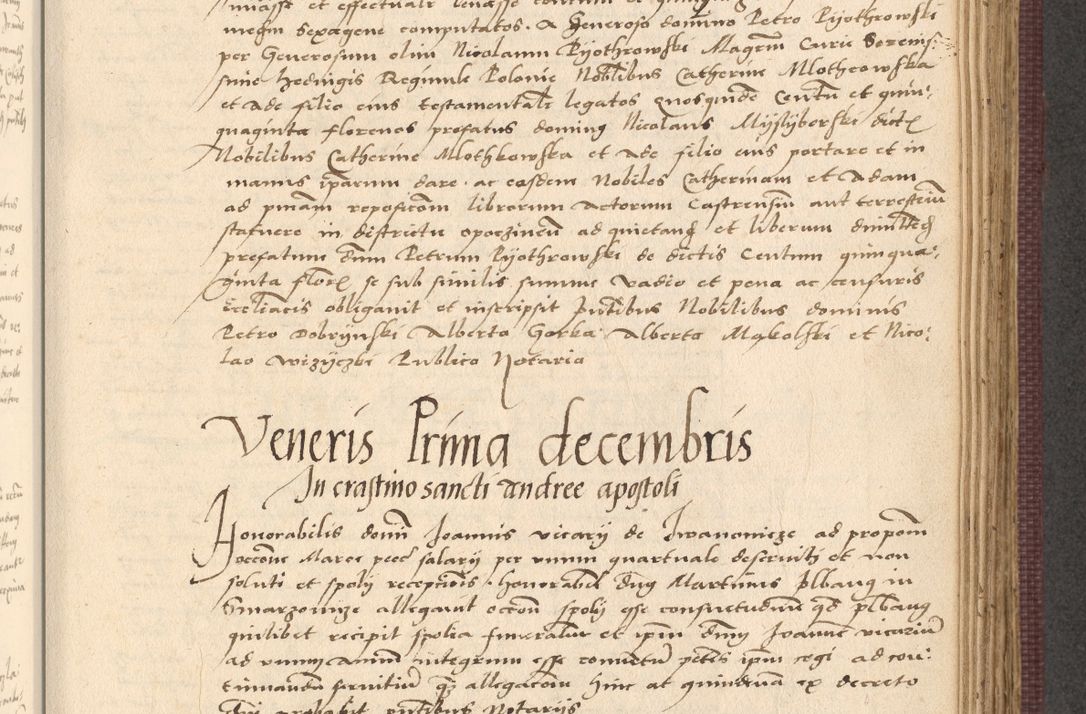 misse et effectualr levasse
mesm Sexagene computatos. A Generoso domino Petro Rijothrowski
per Generosum olim Nicolaum Rijothrowski Magrm Curie Serenis:
sime Hedvigis Regnule Polonie Nobilibus Catherine Mlothcowska
et Ade filio eius testamentalr legatos quosquidē Centū et quin:
quaginta florenos prefatus dominus Nicolaus Mysyberski dict
Nobilibus Catherine Mlothkowska et Ade filio eius portare et in
manus ip̄arum dare. ac easdem Nobiles Catherinam et Adam
ad prnām reposicōm librorum Actorum Castrensiū aut terrestriū
statuere in districtu opoczineñ ad quietand et liberum dimittend
prefatum dnm Petrum Rijothrowski de dictis Centum quinqua:
ginta flor se sub similis summe vadio et pena ac censuris
Eccliacis obligavit et inscripsit pntibus Nobilibus dominis
Petro Dobrijnski Alberto Gorka Alberto Makolski et Nico:
lao Wizijczki Publico Notario
Veneris Prima decembris
In crastino sancti Andree apostoli
Honorabilis domi Joannis vicarij de Iwanowicze ad propom
occone Marce pece salarij per unum quartuale deservitj et non
soluti et spolij recepcionis. honorabil dnus Martinus plbanus in
Smarzowicze allegavit occon spolij esse consuetudine qd plbanus
quilibet recipit spolia funeralium et ipm dnm Joanne vicariū
ad unum Annū integrum esse conventū petens ipm cogi ad con:
tinuandū servitiū qz allegacom hinc at quindena ex decreto
dni probabit pntibus Notarijs